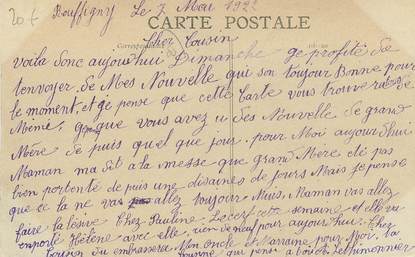 20 f
Bouffigny Le 7 Mai 1922
CARTE POSTALE
Cher Cousin
voila donc aujourd'hui Dimanche ge profite de
t'envoyer de Mes Nouvelle qui son toujour Bonne pour
le moment, et ge pense que cette carte vous trouve de
Même, que vous avez u des Nouvelle de grand
Mère de puis quel que jour. pour Moi aujourd'hui
Maman ma dit a la messe que grand Mère été pas
bien portente de puis une disaines de jours Mais je pense
que ce la ne vas allez toujour Mius, Maman vas allez
faire la lésive Chez Pauline cette semaine et elle
emporte Hélène avec elle, rien de neuf pour aujourd'hui. Chez
Cousin tu embrassera Mon Oncle et Marraine pour Moi. Ta
Cousine qui pense a vous